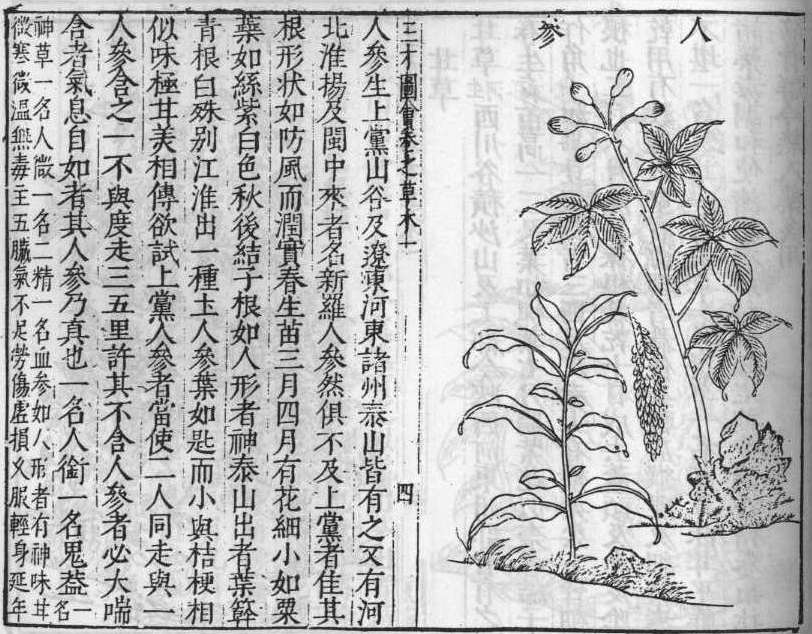 人
參
三才圖會卷之草木一 四
人參生上黨山谷及遼東河東諸州泰山皆有之又有河
北淮揚及閩中來者名新羅人參然俱不及上黨者佳其
根形狀如防風而潤實春生苗三月四月有花細小如粟
葉如絲紫白色秋後結子根如人形者神泰山出者葉簳
青根白殊別江淮出一種土人參葉如匙而小與桔梗相
似味極甘美相傳欲試上黨人參者當使二人同走與一
人參含之一不與度走三五里許其不含人參者必大喘
含者氣息自如者其人參乃真也一名人銜一名鬼蓋一名
神草一名人微一名土精一名血參如人形者有神味甘
微寒微溫無毒主五臟氣不足勞傷虛損久服輕身延年